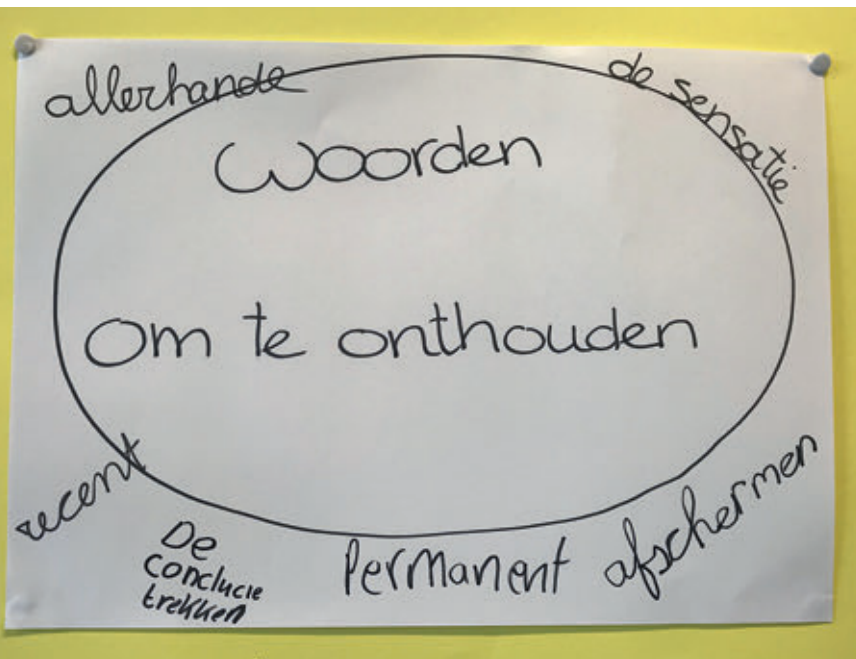 allerhande
de sensatie
Woorden
om te onthouden
recent
De
conclucie
trekken
Permanent
afschermen